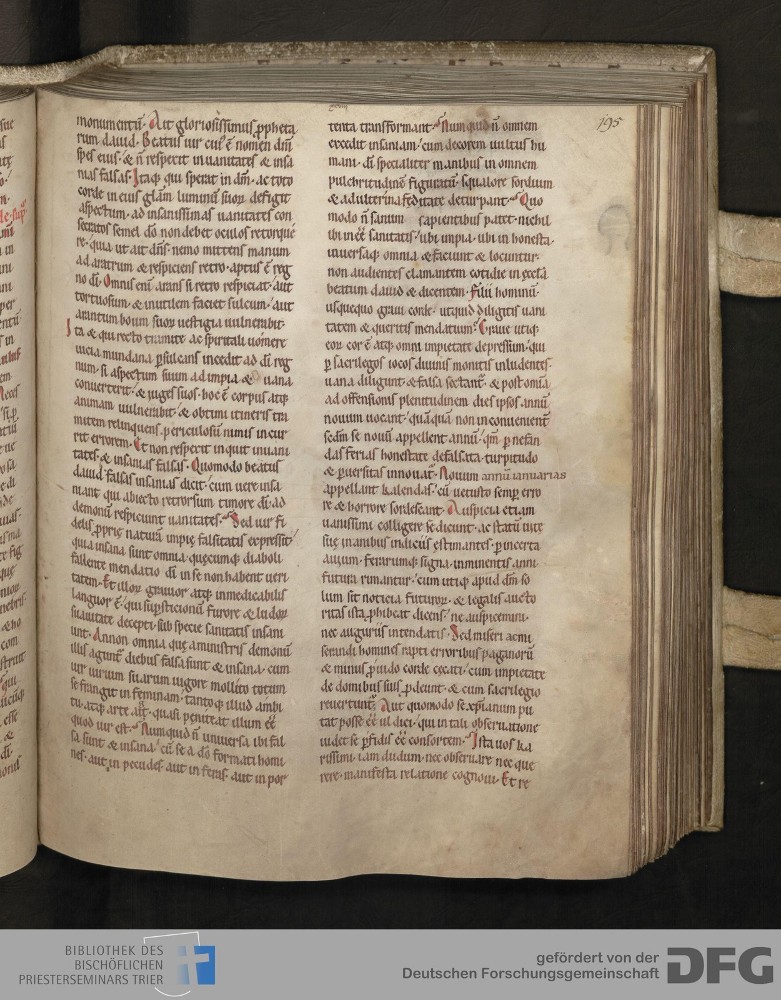 monumentũ. Ait gloriosissimus ꝓpheta
rum dauid. Beatus uir cui᷒ ẽ nomen dñi
spes eius. & ñ respexit in uanitates & insa
nias falsas. Itaq; qui sperat in dño. ac toto
corde in eius glãm luminũ suoꝝ defigit
aspectum. ad insanissimas uanitates con
secratos semel dõ non debet oculos retorque
re. quia ut ait dñs. nemo mittens manum
ad aratrum & respiciens retro. aptus ẽ reg
no dĩ. Omnis enĩ arans si retro respiciat. aut
tortuosum. & inutilem faciet sulcum. aut
arantum boum suoꝝ uestigia uulnerabit.
Ita & qui recto tramite ac spiritali uomere
mundana ꝑsulcans incedit ad dĩ reg
num. si aspectum suum ad impia & uana
conuerterit. & iuges suos. hoc ẽ corpus atq;
animam uulnerabit. & obtimi itineris tra
mitem relinquens. periculosũ nimis incur
rit errorem. Et non respexit inquit in uani
tates. & insanias falsas. Quomodo beatus
dauid falsas insanias dicit. cum uere insa
niant qui abiecto retrorsum timore dĩ. ad
demonũ respiciunt uanitates. Sed uir si
delis ꝓprie naturã impie falsitatis expressit.
quia insana sunt omnia quęcumq; diaboli
fallente mendatio dĩ in se non habent ueri
tatem. Et illoꝝ grauior atq; inmedicabilis
languor ẽ. qui suꝑsticionũ furore & ludoꝝ
suauitate decepti. sub specie sanitatis insani
unt. Annon omnia quę a ministris demonũ
illis agunt᷑ diebus falsa sunt & insana. cum
uir uirium suarum uigore mollito totum
se frangit in feminam. tantoq; illud ambi
tu atq; arte agit. quasi peniteat illum eẽ
quod uir est. Numquid ñ uniuersa ibi fal
sa sunt & insana. cũ se a dõ formati homi
nes. aut in pecudes. aut in feras. aut in por
195
tenta transformant. Numquid ñ omnem
excedit insaniam. cum decorem uultus hu
mani. dĩ specialiter manibus in omnem
pulchritudinẽ figuratũ. squalore sordium
& adulterina fęditate deturpant. Quo
modo ñ sanum sapientibus patet. nichil
ibi in eẽ sanitatis. ubi impia. ubi in honesta.
uniuersaq; omnia & faciunt & locuntur.
non audientes clamantem cotidie in ęccl̃a
beatum dauid & dicentem. Filii hominũ.
usquequo graui corde. utquid diligitis uani
tatem & queritis mendatium. Graue utiq;
eoꝝ cor ẽ atq; omni impietate depressum. qui
ꝑ sacrilegos iocos diuinis monitis inludentes.
uana diligunt. & falsa sectant᷑. & post omĩa
ad offensionis plenitudinem dies ipsos annũ
nouum uocant. quãquã non inconuenient᷑
scdm se nouũ appellent annũ. qm̃ ꝑ nefan
das ferias honestate defalsata. turpitudo
& ꝑuersitas innouat᷑. Nouum annũ ianuarias
appellant kalendas. cũ uetusto semꝑ erro
re & horrore sordescant. Auspicia etiam
uanissimi colligere se dicunt. ac statũ uitę
suę inanibus indiciis ęstimantes. ꝑ incerta
auium. ferarumq; signa. inminentis anni
futura rimantur. cum utiq; apud dm̃ so
lum sit noticia futuroꝝ. & legalis aucto
ritas ista ꝓhibeat dicens. ne auspicemini.
nec auguriis intendatis. Sed miseri ac mi
serandi homines rapti erroribus paganorũ
& minus ꝓuido corde cęcati. cum impietate
de domibus suis ꝓdeunt. & cum sacrilegio
reuertunt᷑. Aut quomodo se xp̃ianum pu
tat posse eẽ ul dici. qui in tali obseruatione
iudet se ꝑfidis eẽ consortem. Ista uos ka
rissimi. iam dudum. nec obseruare nec que
rere. manifesta relatione cognoui. Et re
BIBLIOTHEK DES
BISCHÖFLICHEN
PRIESTERSEMINARS TRIER
gefördert von der
Deutschen Forschungsgemeinschaft
DFG